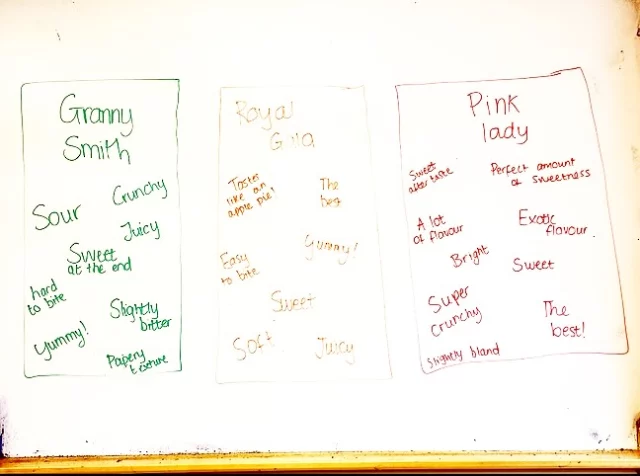 Granny
Smith
Crunchy
Sour
Juicy
Sweet
at the end
hard
to bite
Slightly
bitter
Yummy!
Papery
texture
Royal
Gala
Tastes
like an
apple pie!
The
best
Yummy!
Easy
to bite
Sweet
Soft
Juicy
Pink
lady
Sweet
after taste
Perfect amount
of sweetness
A lot
of flavour
Exotic
flavour
Bright
Sweet
Super
crunchy
The
best!
Slightly bland